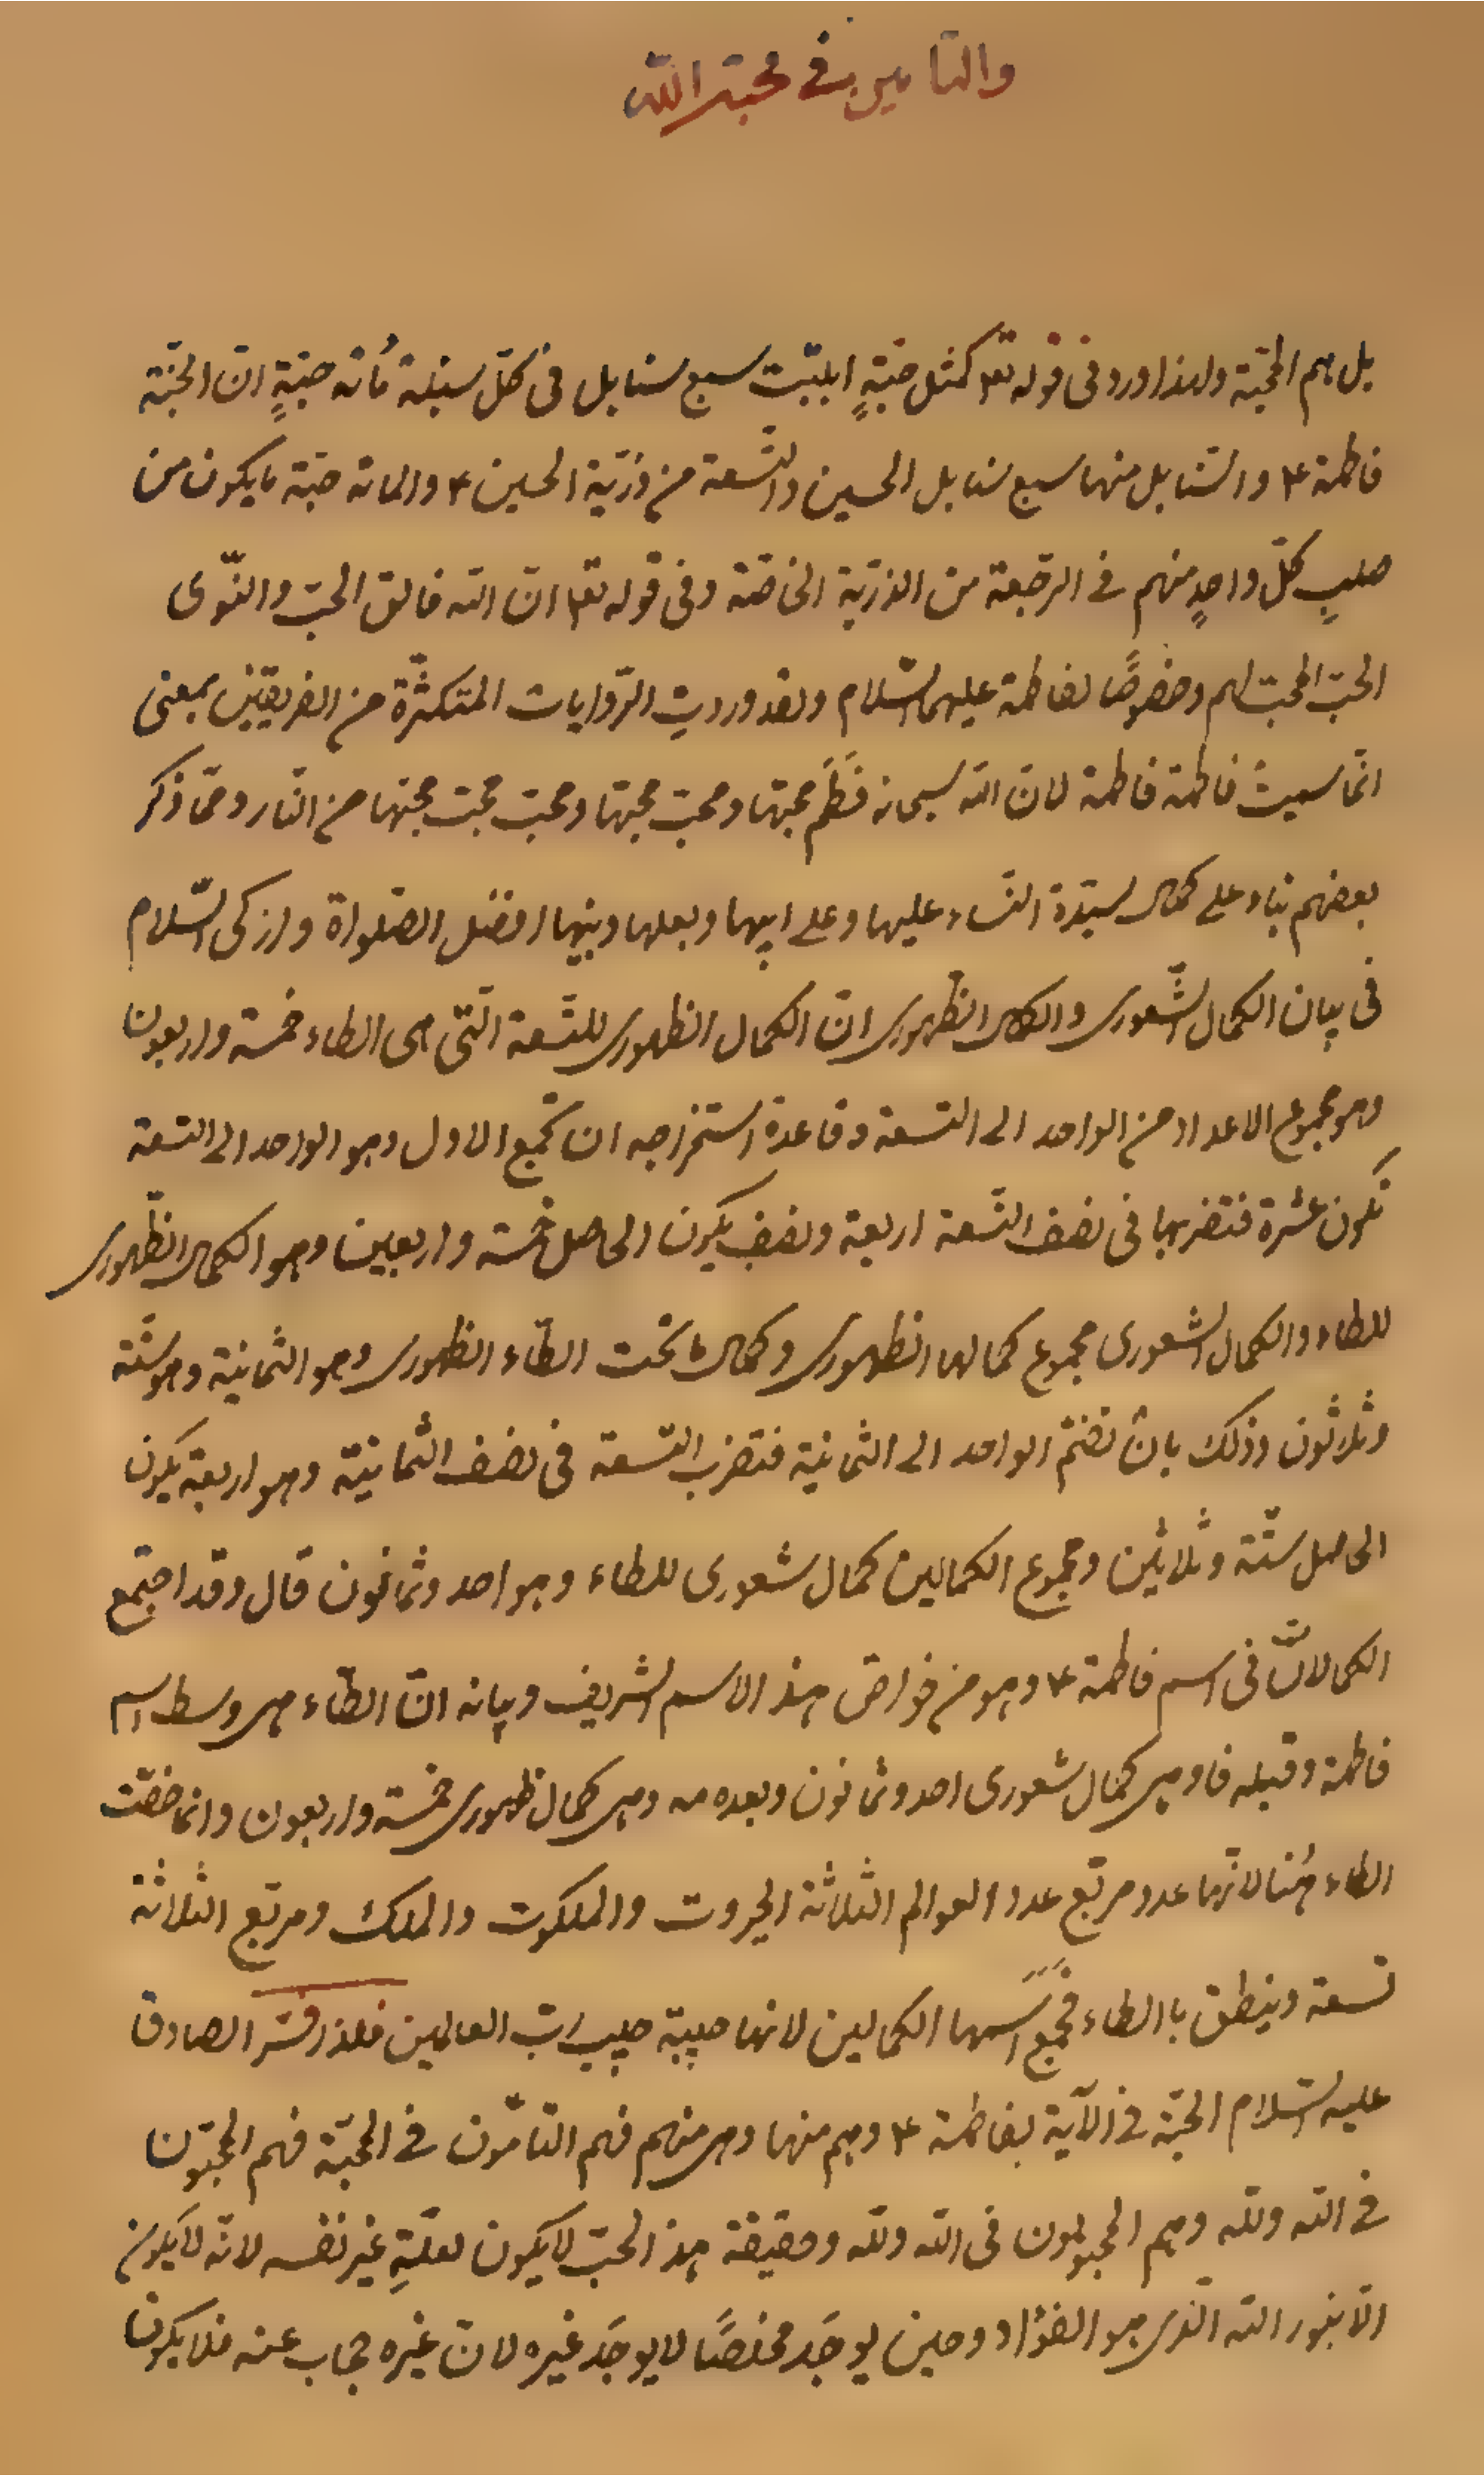 والتامين في محبة الله
بل هم المحبّة ولهذا ورد فى قوله تع٣ كمثل حبّةٍ انبتت سبع سنابل فى كلّ سنبلة مائة حبّةٍ انّ الحبّة
فاطمة ع٣ والسّنابل منها سبع سنابل الحسين والتّسعة من ذرّية الحسين ع والمائة حبّة ما يكون من
صلبِ كلّ واحدٍ منهم فى الرجعة من الذرّية الخاصّة وفى قوله تع٣ انّ الله فالق الحبّ والنّوى
الحبّ المحبّ لهم وخصوصًا لفاطمة عليهم السّلام ولقد وردتِ الرّوايات المتكثّرة من الفريقين بمعنى
انّما سميت فاطمة فاطمة لانّ الله سبحانه فَطَمَ محبّها ومحبّ محبّها ومحبّ محبّ محبّها من النّار وممّا ذكر
بعضهم بناء على كمال سيّدة النّساء عليها وعلى ابيها وبعلها وبنيها افضل الصّلواة وازكى السّلام
فى بيان الكمال الشّعورى والكمال الظّهورى انّ الكمال الظهورى للتّسعة الّتى هى الطاء خمسة واربعون
وهو مجموع الاعداد من الواحد الى التسعة وقاعدة استخراجه ان تجمع الاول وهو الواحد الى التسعة
تكون عشرة فتضربها فى نصف التّسعة اربعة ونصف يكون الحاصل خمسة واربعين وهو الكمال الظّهورى
للطاء والكمال الشعورى مجموع كمالها الظهورى وكمال ما تحت الطّاء الظهورى وهو الثمانية وهو ستّة
وثلاثون وذلك بان تضمّ الواحد الى الثمانية فتضرب التّسعة فى نصف الثّمانيّة وهو اربعة يكون
الحاصل ستّة وثلاثين ومجموع الكمالين كمال شعورى للطاء وهو احد وثمانون قال وقد اجتمع
الكمالانّ فى اسم فاطمة ع وهو من خواصّ هذ الاسم الشريف وبيانه انّ الطّاء هى وسط اسم
فاطمة وقبله فا وهى كمال شعورى احد وثمانون وبعده مه وهى كمال ظهورى خمسة واربعون وانما خصّت
الطاء هُنا لانّها عدد مربّع عدد العوالم الثلاثة الجبروت والملكوت والملك ومربّع الثلاثة
تسعة وينطق باالطاء فجمع اسمها الكمالين لانها حبيبة حبيب ربّ العالمين فلذا فسّر الصادق
عليه السّلام الحبّة فى الآية بفاطمة ع٣ وهم منها وهى منهم فهم التامّون فى المحبّة فهم المحبّون
فى الله ولله وهم المحبوبون فى الله ولله وحقيقة هذ الحبّ لا يكون لعلّةٍ غير نفسه لانّه لا يكون
الّا بنور الله الّذى هو الفؤاد وحين يوجَد مخلصًا لا يوجَد غيره لانّ غيره حجاب عنه فلا يكون